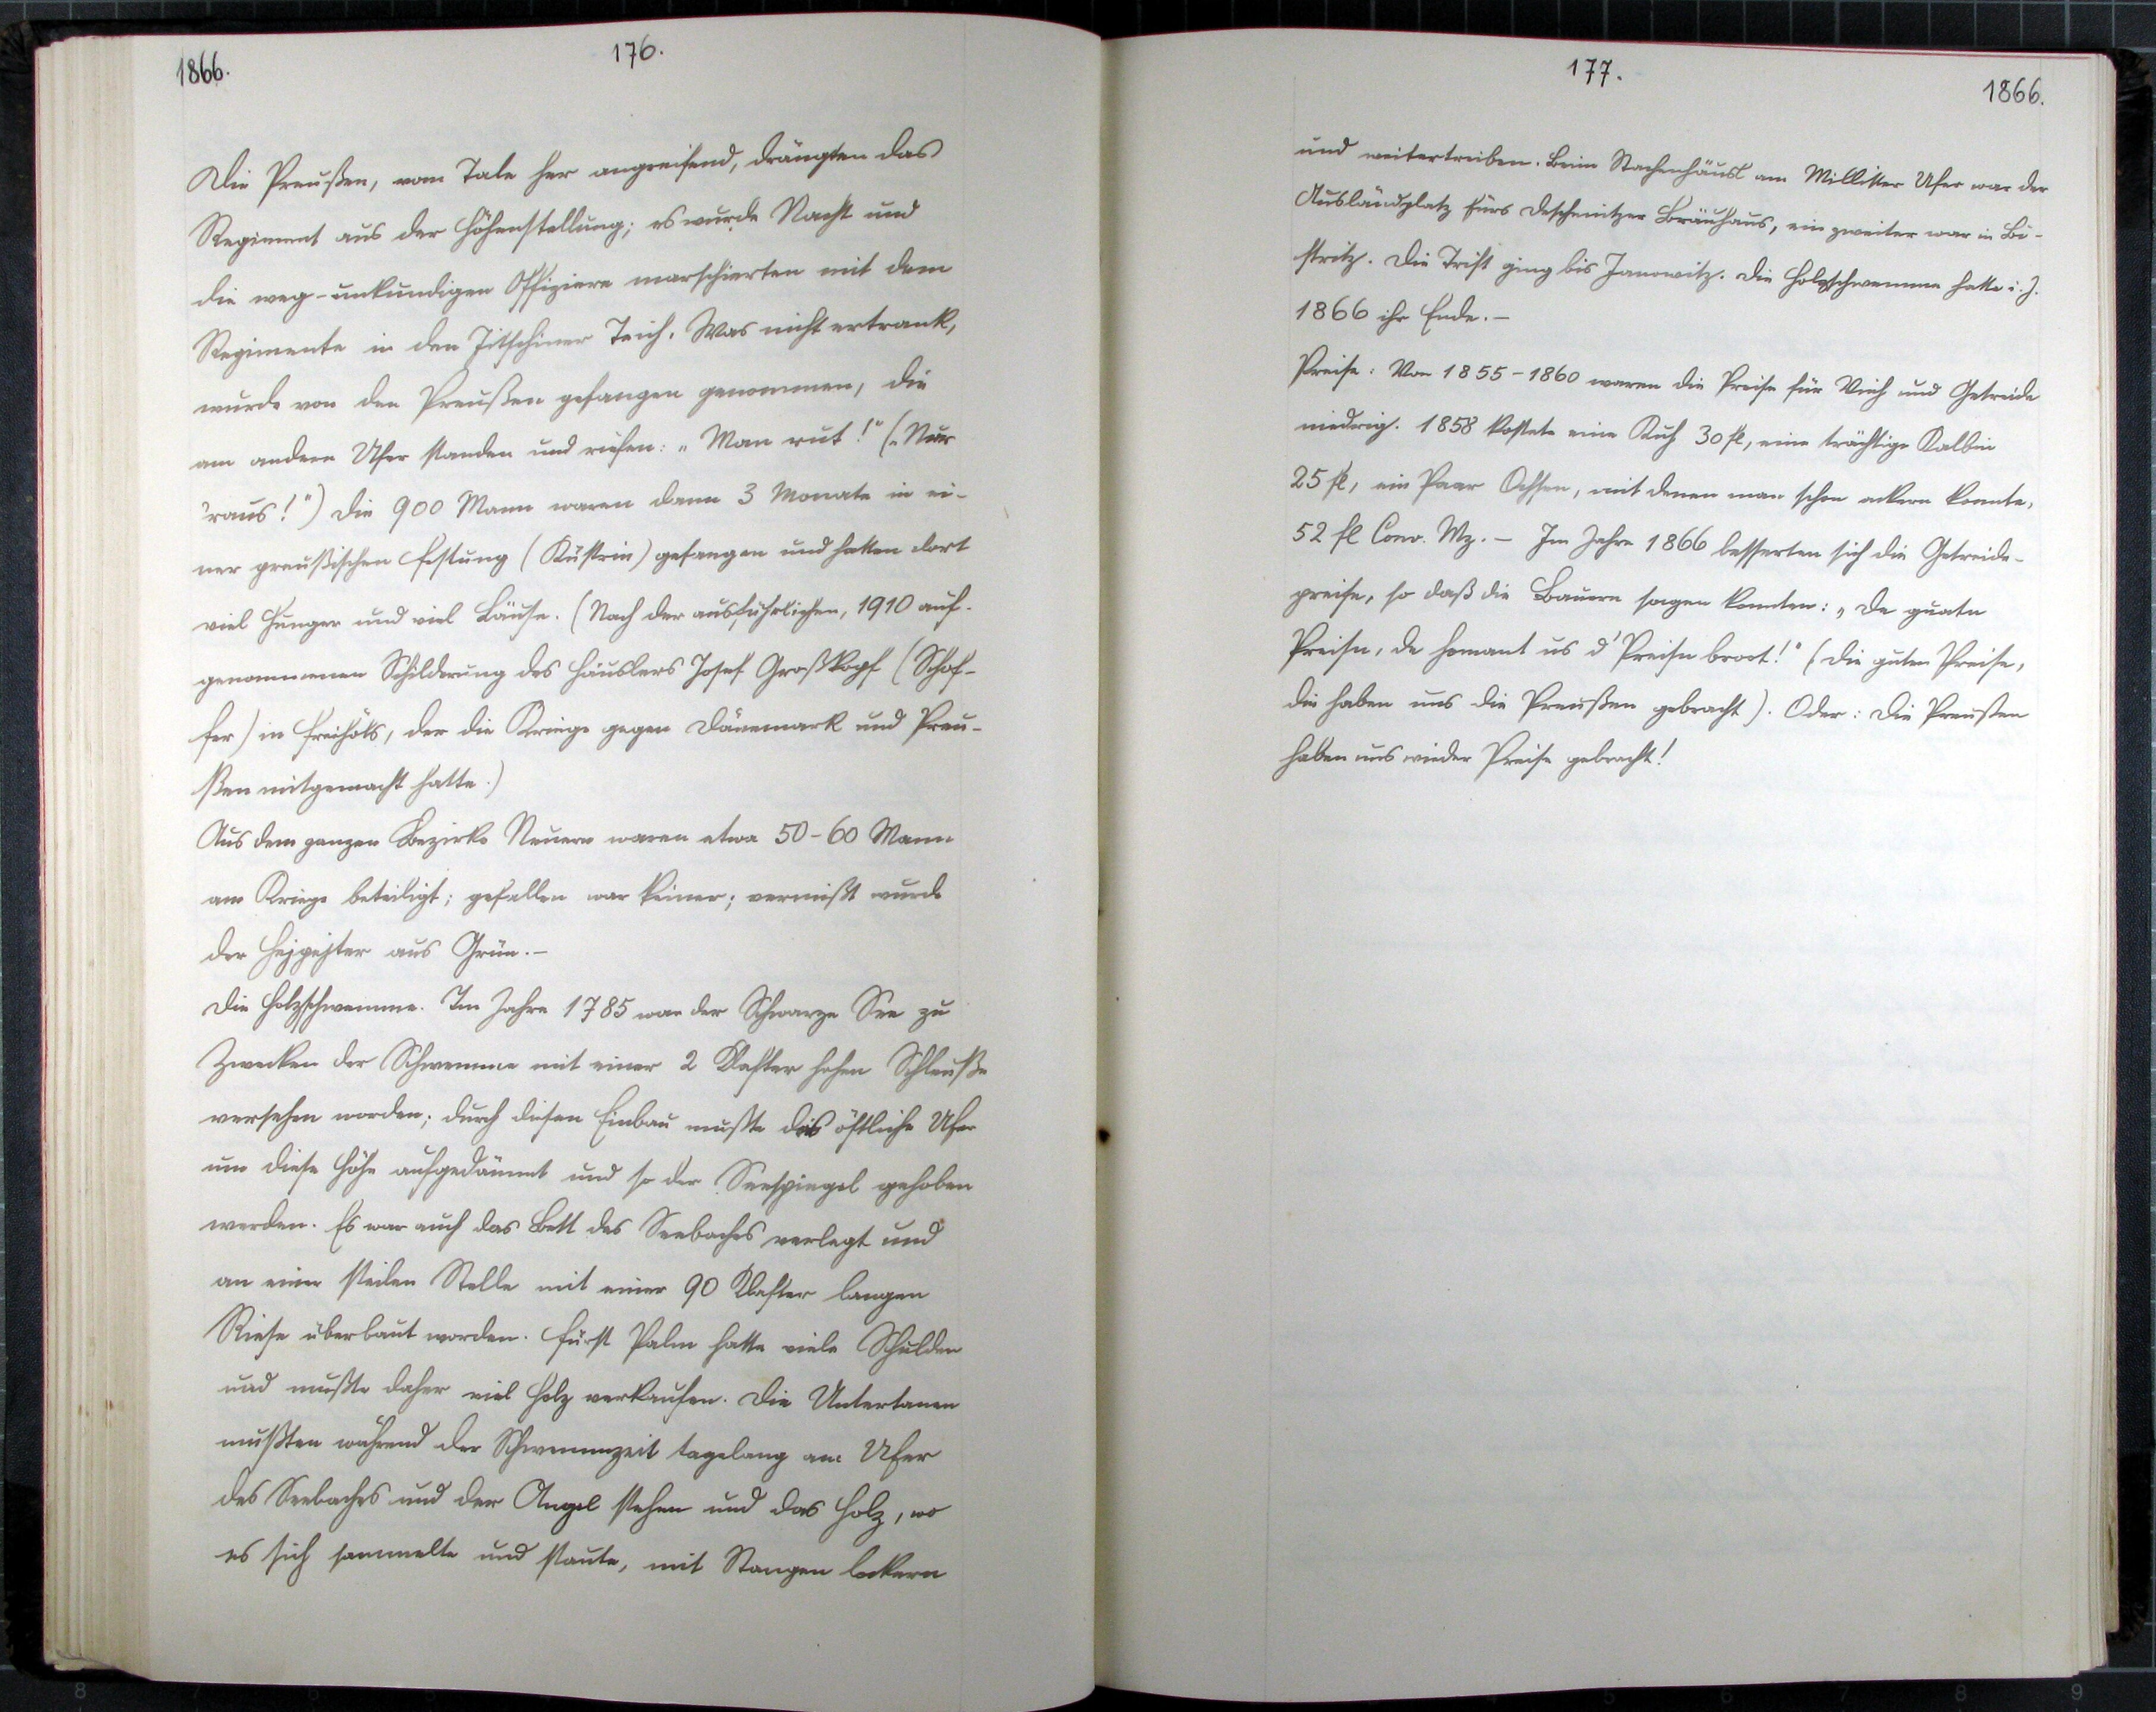 1866.
176.
Die Preußen, vom Tale her angreifend, drängten das
Regiment aus der Höhenstellung; es wurde Nacht und
die weg-unkundigen Offiziere marschierten mit dem
Regimente in den Jitschiner Teich. Was nicht ertrank,
wurde von den Preußen gefangen genommen, die
am andern Ufer standen und riefen: „Man rut!" („Nur
'raus!") Die 900 Mann waren dann 3 Monate in ei-
ner preußischen Festung (Küstrin) gefangen und hatten dort
viel Hunger und viel Läuse. (Nach der ausführlichen, 1910 auf-
genommenen Schilderung des Häuslers Josef Großkopf (Schof-
fer) in Freihöls, der die Kriege gegen Dänemark und Preu-
ßen mitgemacht hatte.)
Aus dem ganzen Bezirke Neuern waren etwa 50-60 Mann
am Kriege beteiligt; gefallen war keiner; vermißt wurde
der aus Grün.-
Die Holzschwemme. Im Jahre 1785 war der Schwarze See zu
Zwecken der Schwemme mit einer 2 Klafter hohen Schleuße
versehen worden; durch diesen Einbau mußte das östliche Ufer
um diese Höhe aufgedämmt und so der Seespiegel gehoben
werden. Es war auch das Bett des Seebaches verlegt und
an einer steilen Stelle mit einer 90 Klafter langen
Riese überbaut worden. Fürst Palm hatte viele Schulden
und mußte daher viel Holz verkaufen. Die Untertanen
mußten während der Schwemmzeit tagelang am Ufer
des Seebaches und der Angel stehen und das Holz, wo
es sich sammelte und staute, mit Stangen lockern
177.
1866.
und weitertreiben. Beim Stachenhäusl am Millikter Ufer war der
Ausländplatz fürs Deschenitzer Bräuhaus, ein zweiter war in Bi-
stritz. Die Trift ging bis Janowitz. Die Holzschwemme hatte i. J.
1866 ihr Ende.-
Preise: Von 1855-1860 waren die Preise für Vieh und Getreide
niedrig. 1858 kostete eine Kuh 30 fl, eine trächtige Kalbin
25 fl, ein Paar Ochsen, mit denen man schon ackern konnte,
52 fl Conv. Mz. - Im Jahre 1866 besserten sich die Getreide-
preise, so daß die Bauern sagen konnten: „De guatn
Preisn, de homant us d' Preisn broct!" (Die guten Preise,
die haben uns die Preußen gebracht). Oder: Die Preußen
haben uns wieder Preise gebracht!